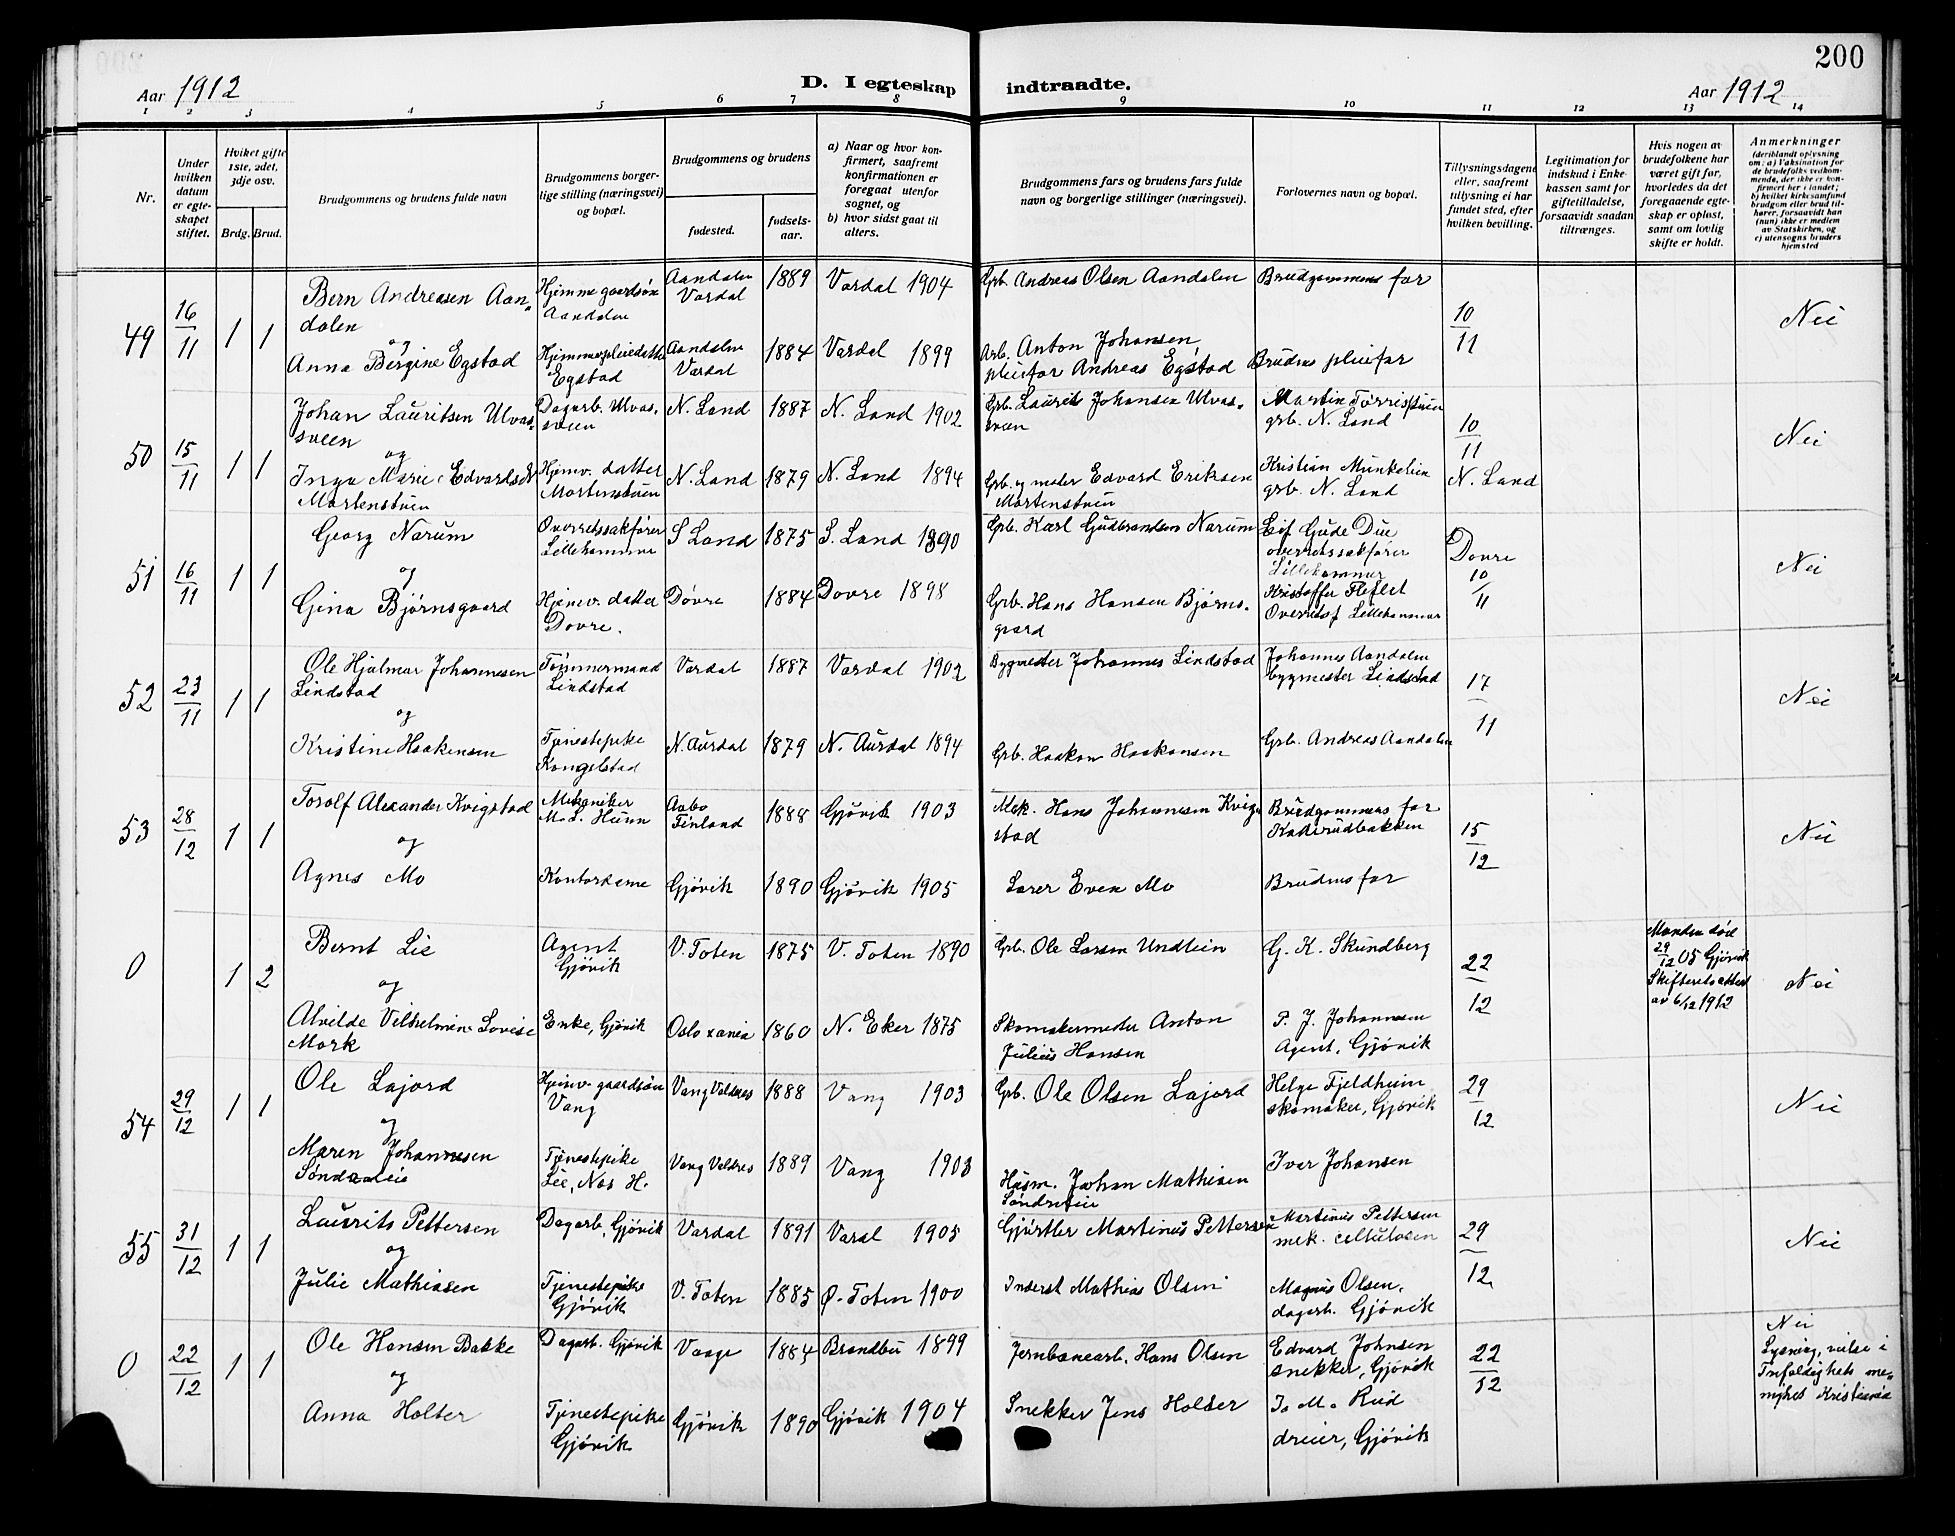 200
Aar 1912
D. I egteskap indtraadte.
Aar 1912
1 2 3 4 5 6 7 8 9 10 11 12 13 14
Nr.
Under hvilken datum er egteskapet stiftet.
Hvilket gifte 1ste, 2det, 3dje osv.
Brdg. Brud.
Brudgommens og brudens fulde navn
Brudgommens borgerlige stilling (næringsvei) og bopæl.
Brudgommens og brudens
fødested.
fødselsaar.
a) Naar og hvor konfirmert, saafremt konfirmationen er foregaat utenfor sognet, og
b) hvor sidst gaat til alters.
Brudgommens fars og brudens fars fulde navn og borgerlige stillinger (næringsvei).
Forlovernes navn og bopæl.
Tillysningsdagene eller, saafremt tillysning ei har fundet sted, efter hvilken bevilling.
Legitimation for indskud i Enkekassen samt for giftetilladelse, forsaavidt saadan tiltrænges.
Hvis nogen av brudefolkene har været gift før, hvorledes da det foregaaende egteskap er opløst, samt om lovlig skifte er holdt.
Anmerkninger (deriblandt oplysning om: a) Vaksination for de brudefolks vedkommende, der ikke er konfirmert her i landet; b) hvilket kirkesamfund brudgom eller brud tilhører, forsaavidt han (hun) ikke er medlem av Statskirken, og c) utensogns bruders hjemsted
49 16/11 1 1
Bern Andreasen Aandalen Hjemme gaardsøn Aandalen Aandalen Vardal 1889 Vardal 1904 Grb. Andreas Olsen Aandalen Brudgommens far 10/11 Nei
og
Anna Bergine Egstad Hjemme pleiedatter Egstad Aandalen Vardal 1884 Vardal 1899 Arb. Anton Johansen, pleiefar Andreas Egstad Brudens pleiefar
50 15/11 1 1
Johan Lauritsen Ulvassveen Dagarb. Ulvassveen N. Land 1887 N. Land 1902 Grb. Laurits Johansen Ulvassveen Martin Tørrisstuen grb. N. Land 10/11 N. Land Nei
og
Inga Marie Edvardsdt Martenstuen Hjemv. datter Martenstuen N. Land 1879 N. Land 1894 Grb. og maler Edvard Eriksen Martenstuen Kristian Munkelien grb. N. Land
51 16/11 1 1
Georg Narum Overretssakfører Lillehammer S Land 1875 S. Land 1890 Grb. Karl Gudbrandsen Narum Leif Gude Due overretssakfører Lillehammer Dovre 10/11 Nei
og
Gina Bjørnsgaard Hjemv. datter Dovre. Dovre 1884 Dovre 1898 Grb. Hans Hansen Bjørnsgaard Kristoffer Fleflet Overretsf Lillehammer
52 23/11 1 1
Ole Hjalmar Johannesen Lindstad Tømmermand Lindstad Vardal 1887 Vardal 1902 Bygmester Johannes Lindstad Johannes Aandalen bygmester Lindstad 17/11 Nei
og
Kristine Haakensen Tjenestepike Kongelstad N. Aurdal 1879 N. Aurdal 1894 Grb. Haakon Haakonsen Grb. Andreas Aandalen
53 28/12 1 1
Torolf Alexander Kvigstad Mekaniker M.d. Hunn Aabo Finland 1888 Gjøvik 1903 Mek. Hans Johannesen Kvigstad Brudgommens far Kallerudbakken 15/12 Nei
og
Agnes Mo Kontordame Gjøvik 1890 Gjøvik 1905 Lærer Even Mo Brudens far
0 1 2
Bernt Lie Agent Gjøvik V. Toten 1875 V. Toten 1890 Grb. Ole Larsen Undlein G. K. Skundberg 22/12 Manden død 29/12 05 Gjøvik Skifteretsattest av 6/12 1912 Nei
og
Alvilde Vilhelmine Lovise Mork Enke, Gjøvik Oslo xania 1860 N. Eker 1875 Skomakermester Anton Julius Hansen P. J. Johannesen Agent, Gjøvik
54 29/12 1 1
Ole Lajord Hjemv. gaardsøn Vang Vang Valdres 1888 Vang 1903 Grb. Ole Olsen Lajord Helge Fjeldheim skomaker, Gjøvik 29/12 Nei
og
Maren Johannesen Søndreeie Tjenestepike Lie, Nas H. Vang Valdres 1889 Vang 1903 Husm. Johan Mathisen Søndreeie Iver Johansen
55 31/12 1 1
Laurits Pettersen Dagarb, Gjøvik Vardal 1891 Vardl 1905 Gjørtler Martinus Pettersen Martinus Pettersen mek. cellulosen 29/12 Nei
og
Julie Mathiasen Tjenestepike Gjøvik V. Toten 1885 Ø. Toten 1900 Inderst Mathias Olsen Magnus Olsen, dagarb. Gjøvik
0 22/12 1 1
Ole Hansen Bakke Dagarb. Gjøvik Vaage 1884 Brandbu 1899 Jernbanearb. Hans Olsen Edvard Johnsen snekker, Gjøvik 22/12 Nei Lysning, vielse i Trefoldighets menighet Kristiania
og
Anna Holter Tjenestepike Gjøvik Gjøvik 1890 Gjøvik 1904 Snekker Jens Holter J. M. Rud dreier, Gjøvik